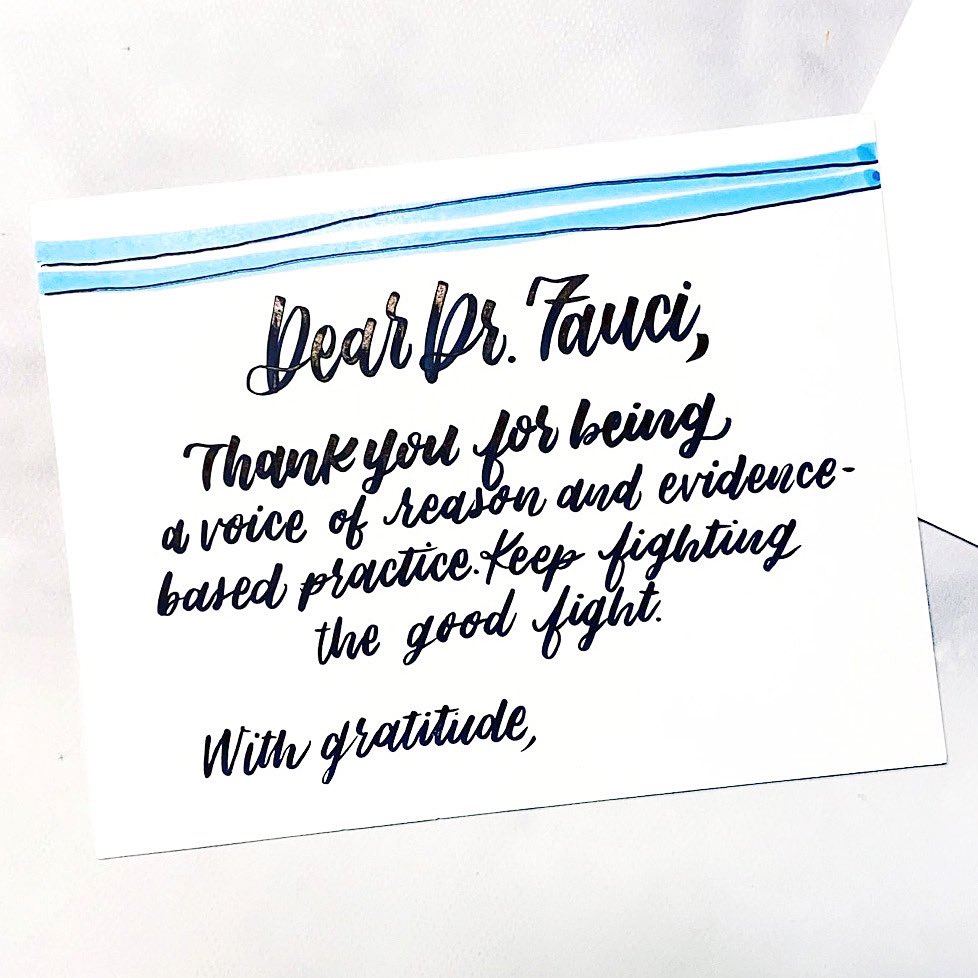 Dear Dr. Fauci,
Thank you for being
a voice of reason and evidence-
based practice. Keep fighting
the good fight.
With gratitude,